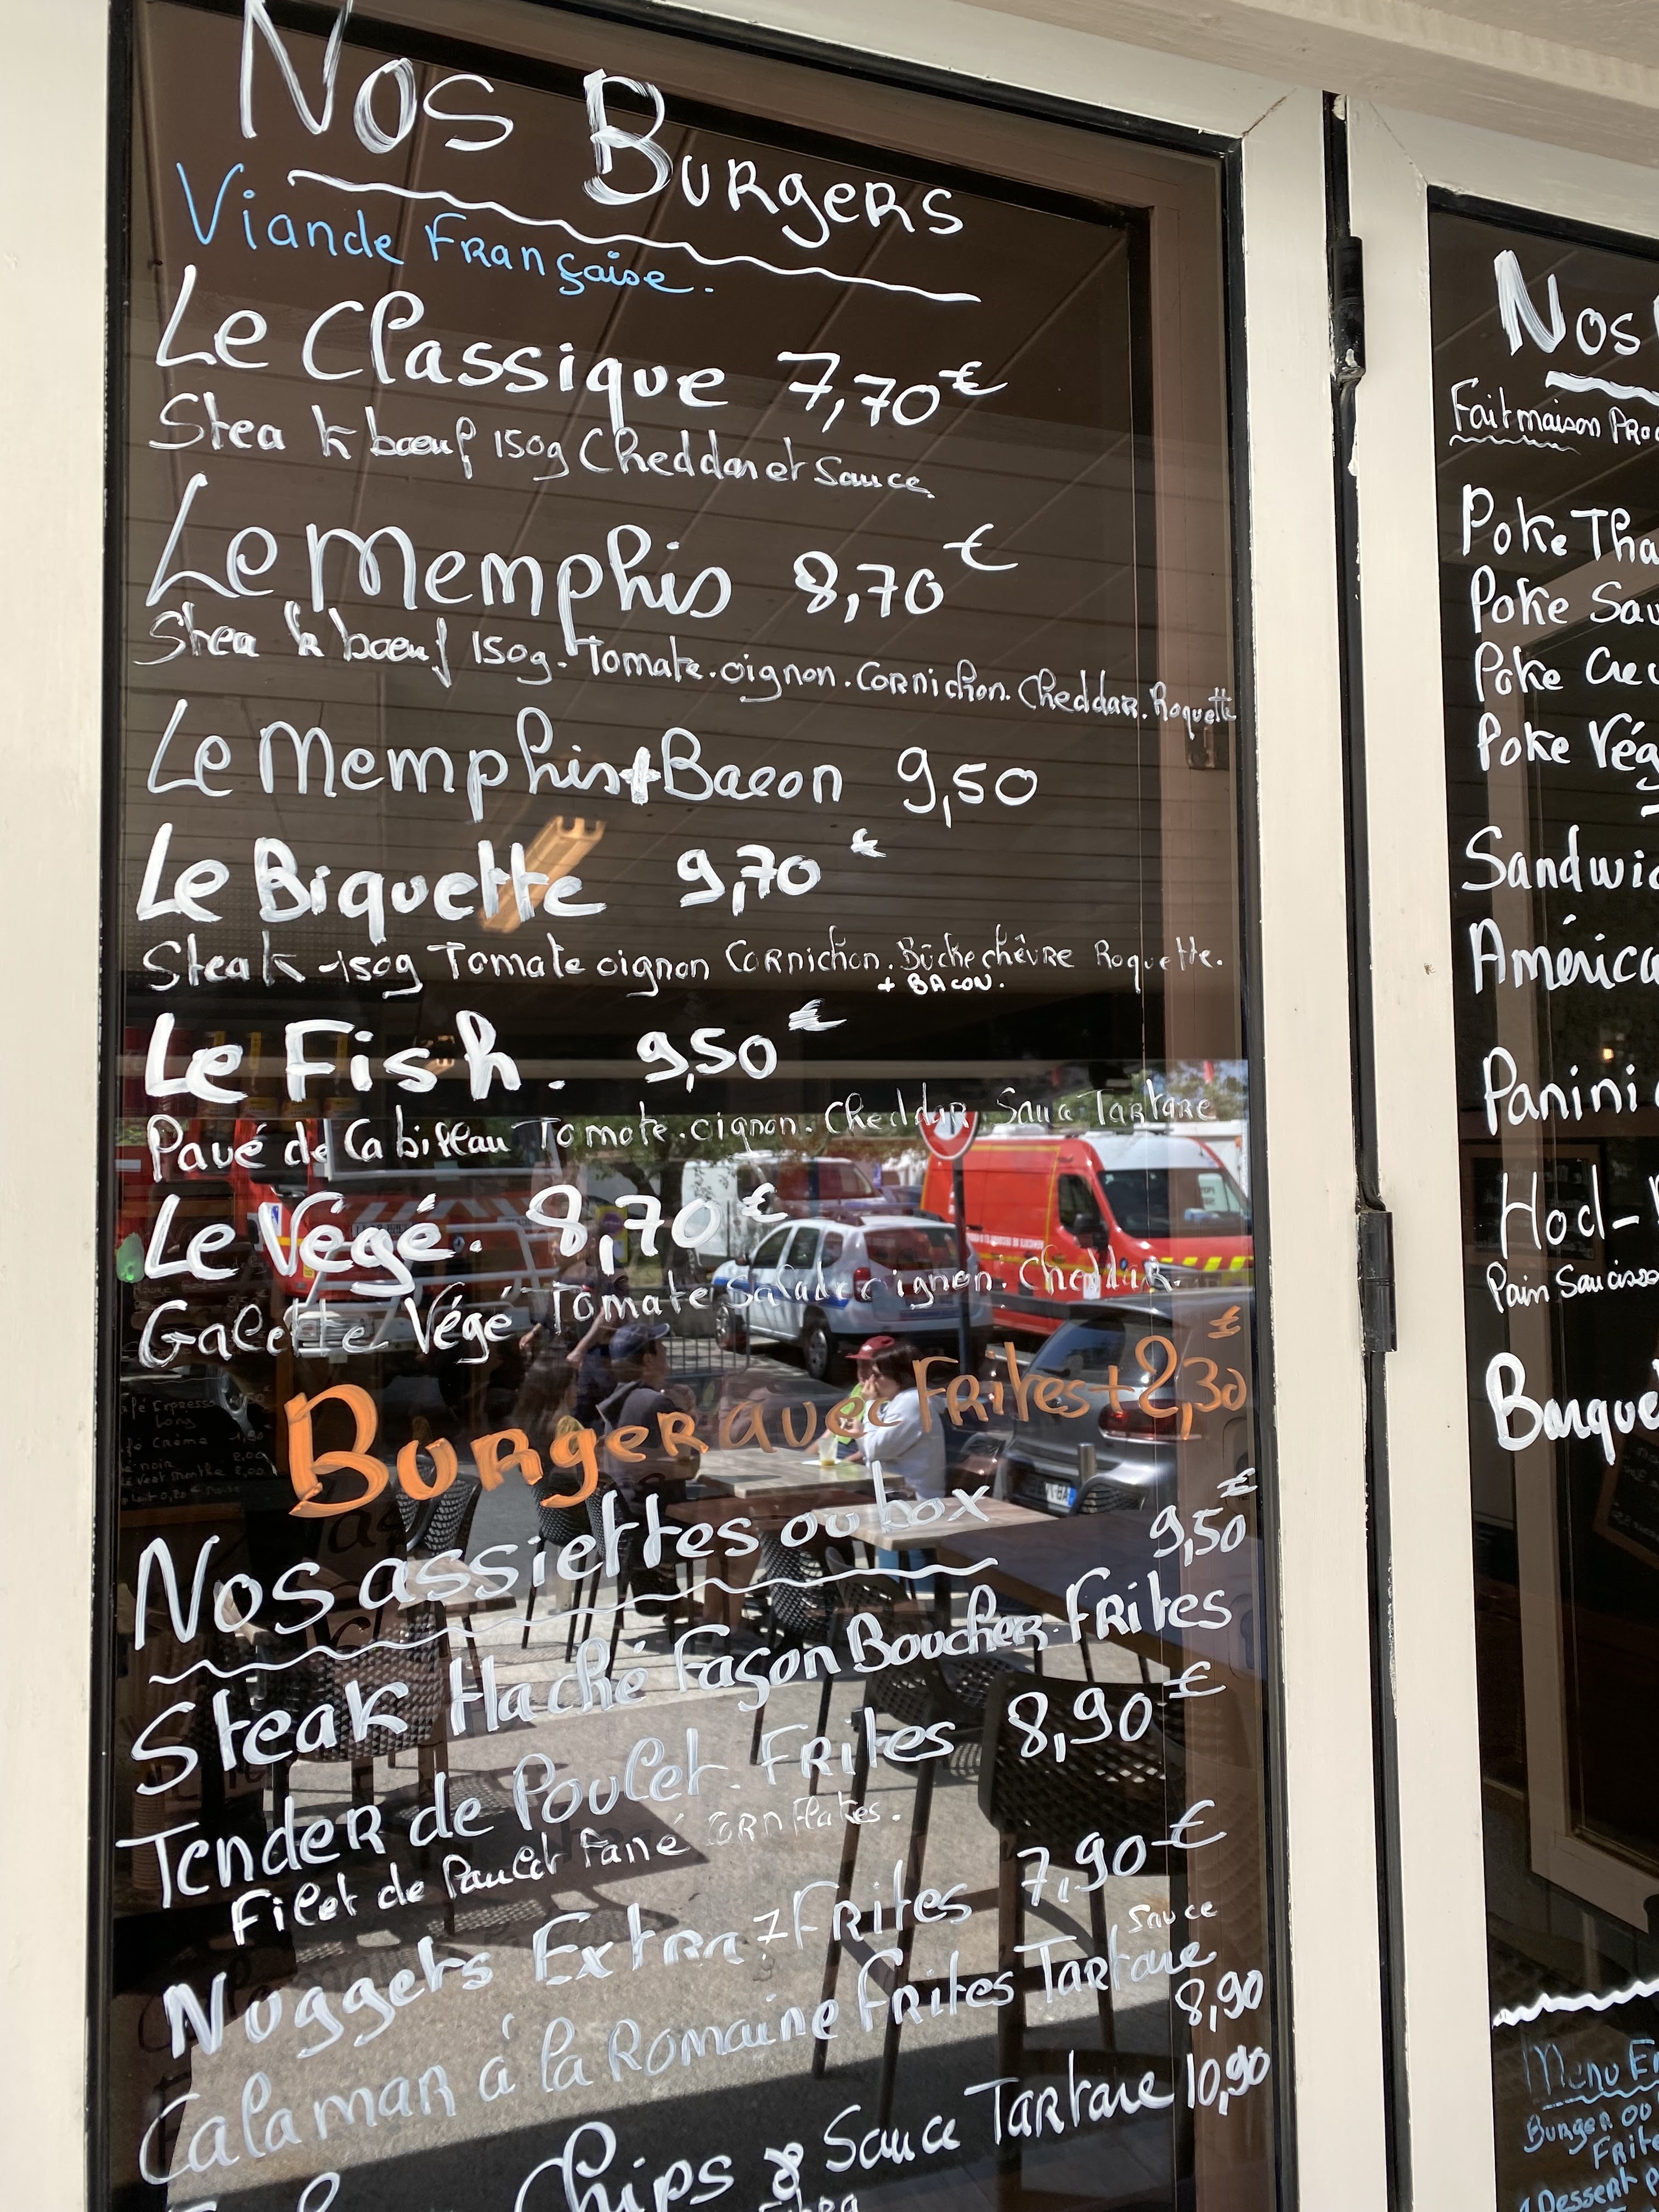 Nos Burgers
Viande Française.
Le Classique 7,70€
Steak bœuf 150g Cheddar et Sauce
Le Memphis 8,70€
Steak bœuf 150g. Tomate. oignon. Cornichon. Cheddar. Roquette
Le Memphis+Bacon 9,50
Le Biquette 9,70€
Steak 150g Tomate oignon Cornichon. Bûche chèvre Roquette.
+ BACON.
Le Fish. 9,50€
Pavé de Cabillau Tomate. oignon. Cheddar. Sauce Tartare
Le Végé. 8,70€
Galette Végé Tomate Salade oignon. Cheddar.
Burger avec Frites +2,30€
Nos assiettes ou box
9,50€
Steak Haché Façon Boucher. Frites
Tender de Poulet. Frites 8,90€
Filet de Poulet Pané CORN Flakes.
Nuggets Extra Frites 7,90€
Calamar à la Romaine Frites Tartare
sauce
8,90
Chips & Sauce Tartare 10,90
Nos
Fait maison
Poke Tha
Poke Sau
Poke Cre
Poke Vég
Sandwic
América
Panini
Hod-
Pain Saucisse
Barque
Menu E
Burger ou
Frite
Dessert